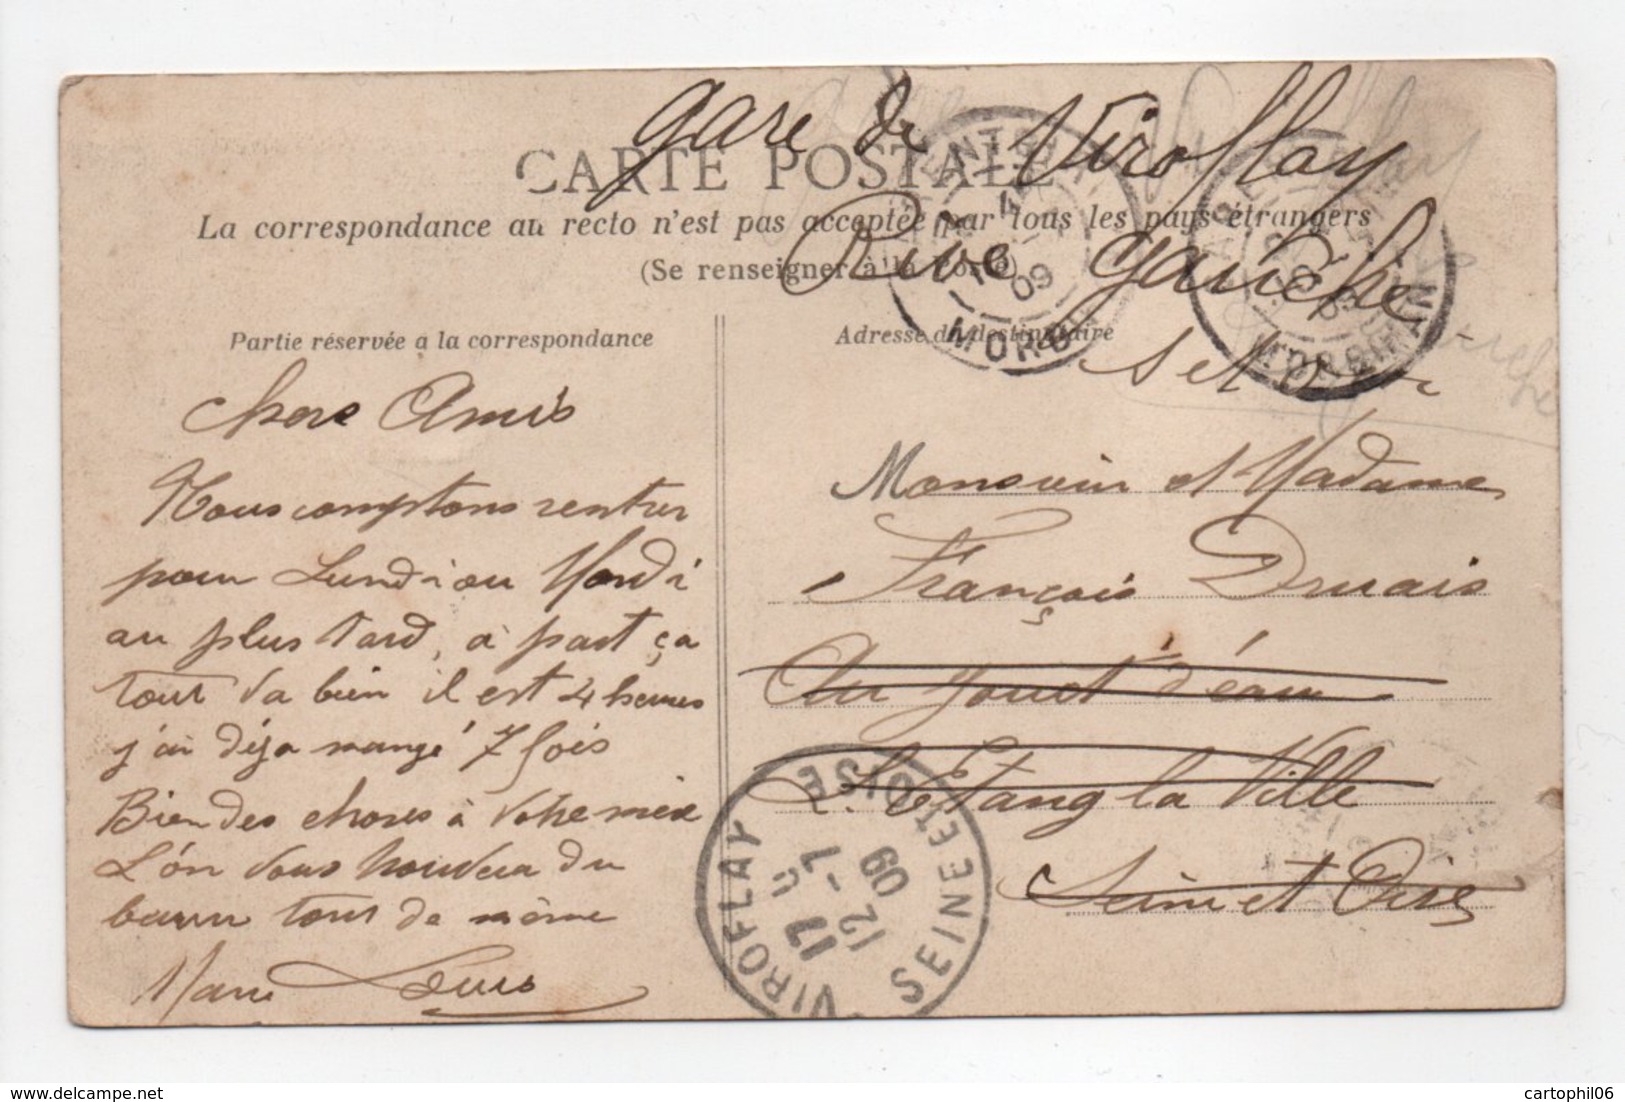 gare de Viroflay
CARTE POSTALE
La correspondance au recto n'est pas acceptée par tous les pays étrangers
Rive gauche
(Se renseigner à la Poste)
Partie réservée a la correspondance
Adresse du destinataire
S et O
chers Amis
Nous comptons rentrer
pour Lundi ou Mardi
au plus tard, à part ça
tout va bien il est 4 heures
j'ai déja mangé 7 fois
Bien des choses à
L'on vous du
tout de même
Louis
Monsieur et Madame
François Druais
Au Jouet d'eau
L'Etang la Ville
Seine et Oise
VIROFLAY
SEINE ET OISE
17
12 - 7
09
MORBIHAN
09
MORBIHAN
delcampe.net
cartophil06